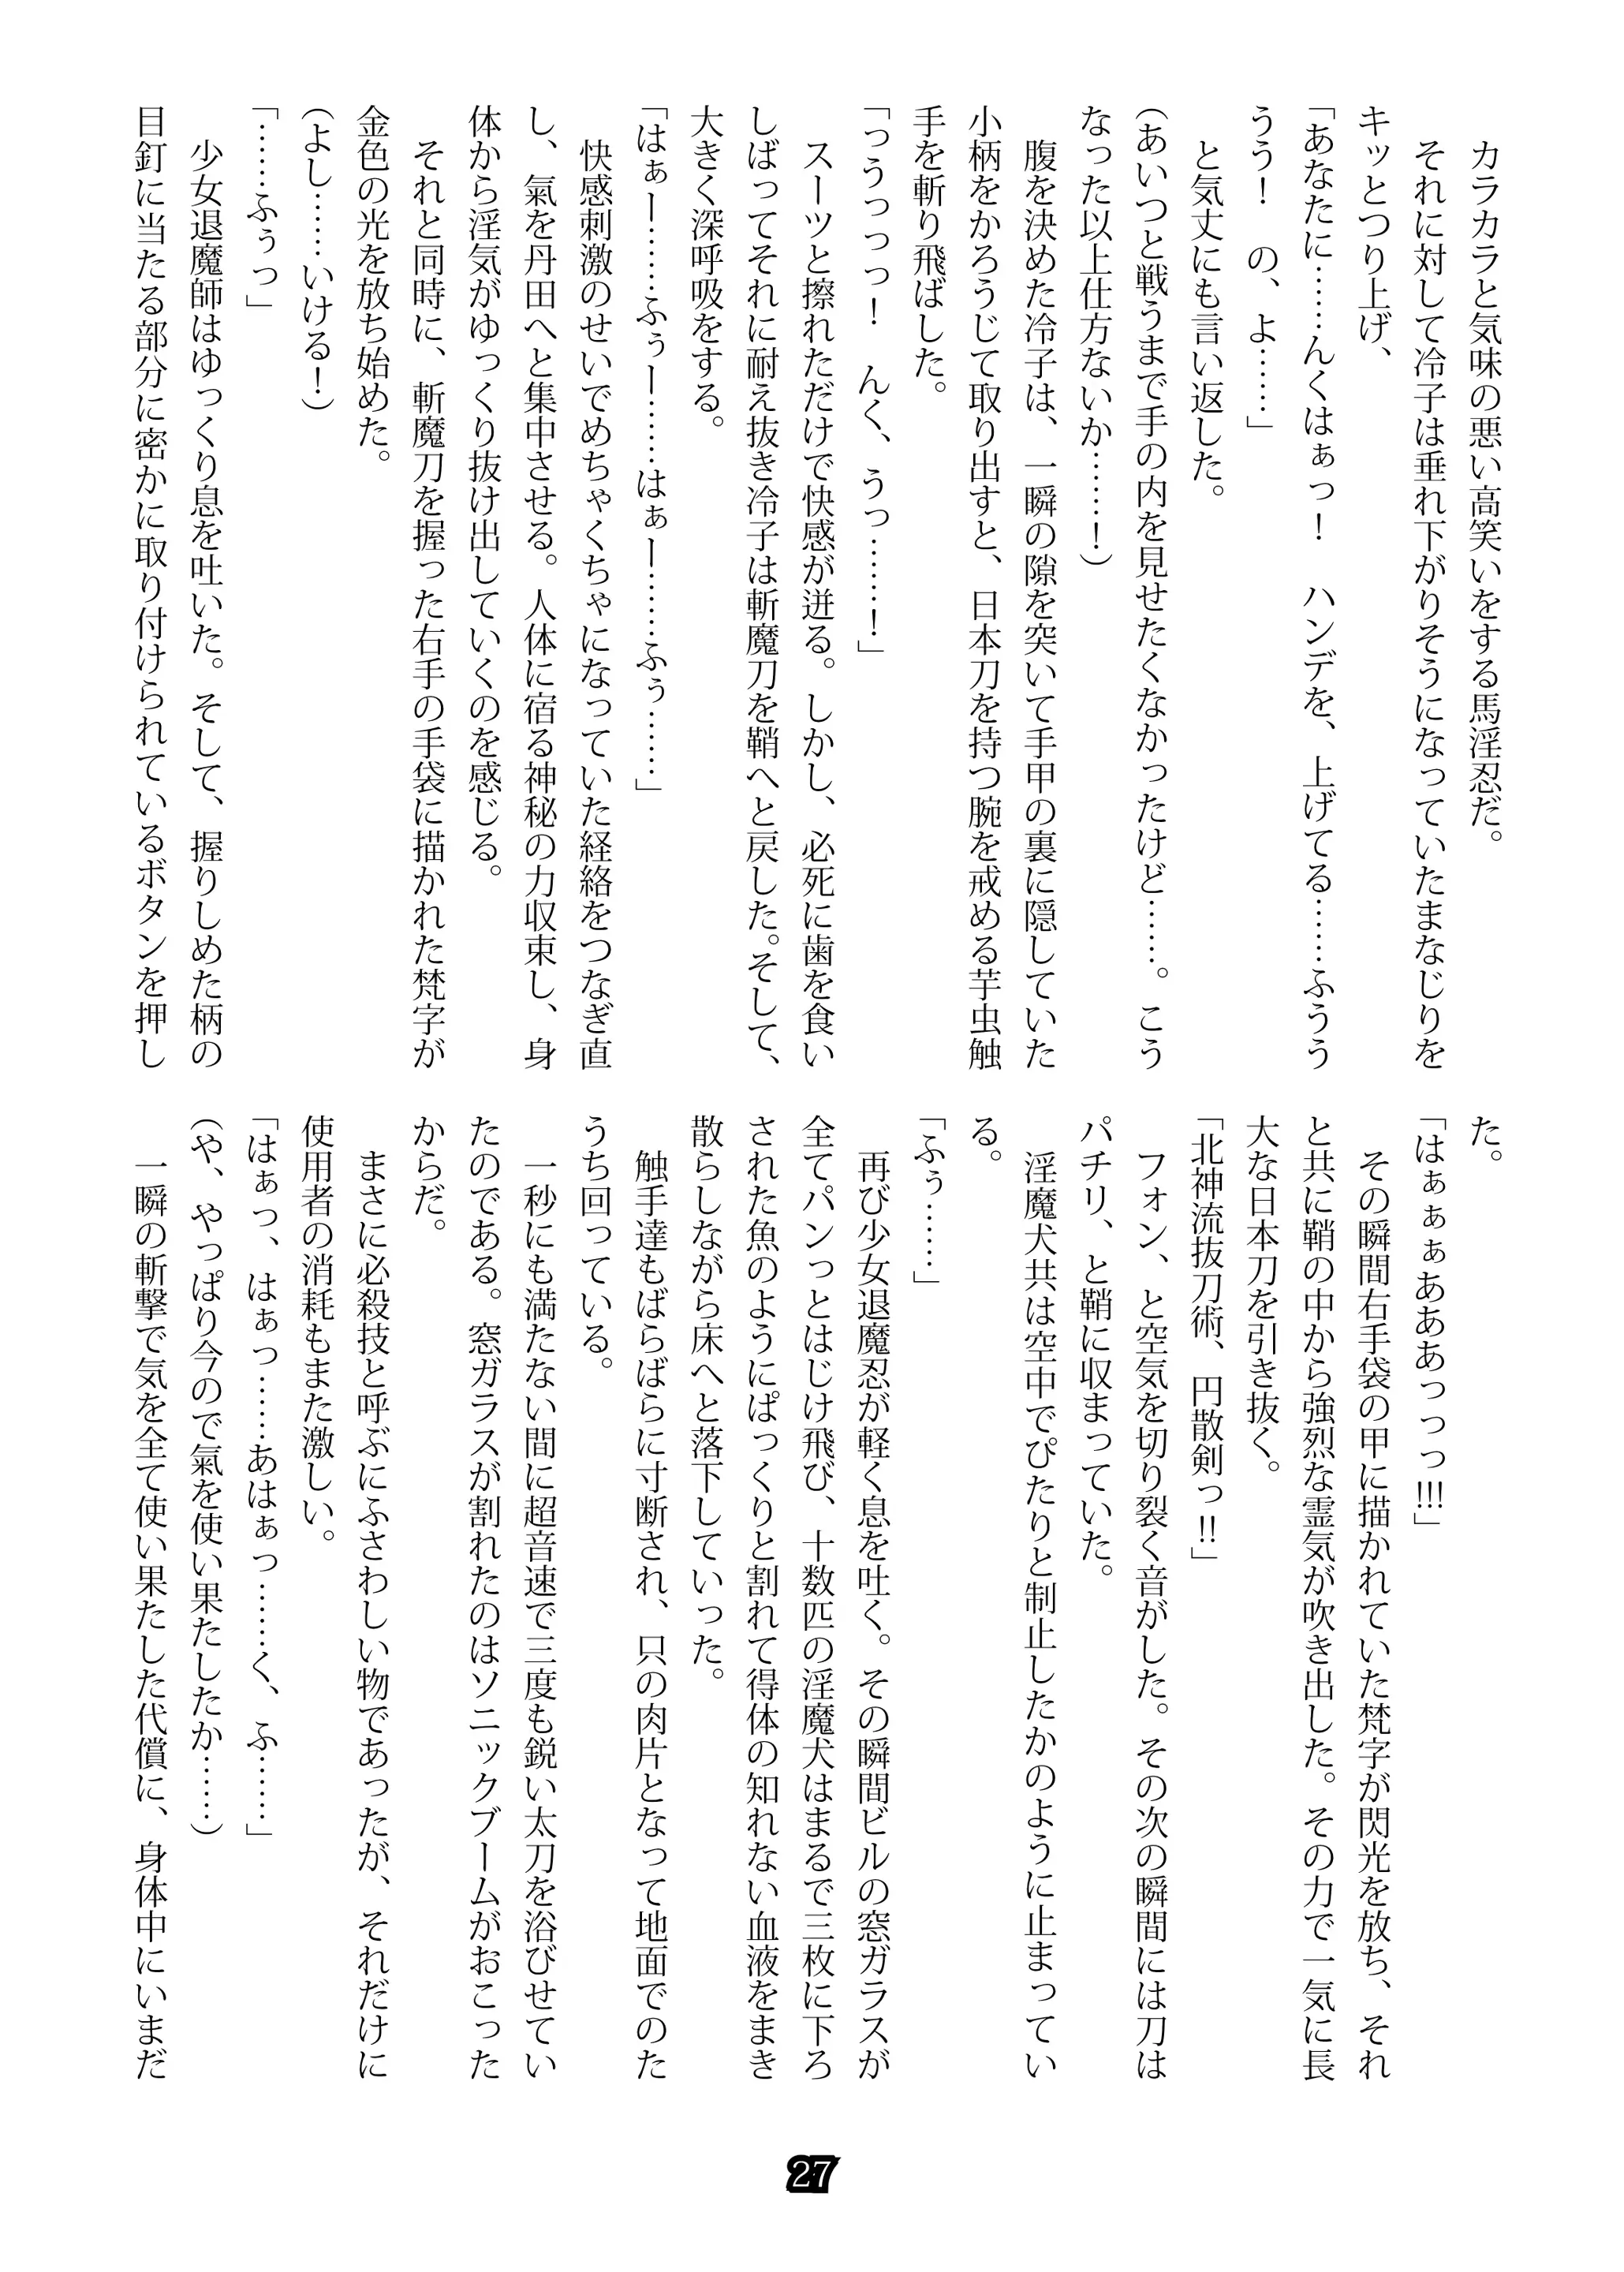 カラカラと気味の悪い高笑いをする馬淫忍だ。
それに対して冷子は垂れ下がりそうになっていたまなじりを
キッとつり上げ、
「あなたに……んくはぁっ！　ハンデを、上げてる……ふうう
うう！　の、よ……」
と気丈にも言い返した。
（あいつと戦うまで手の内を見せたくなかったけど……。こう
なった以上仕方ないか……！）
腹を決めた冷子は、一瞬の隙を突いて手甲の裏に隠していた
小柄をかろうじて取り出すと、日本刀を持つ腕を戒める芋虫触
手を斬り飛ばした。
「っうっっっ！　んく、うっ……！」
スーツと擦れただけで快感が迸る。しかし、必死に歯を食い
しばってそれに耐え抜き冷子は斬魔刀を鞘へと戻した。そして、
大きく深呼吸をする。
「はぁー……ふぅー……はぁー……ふぅ……」
快感刺激のせいでめちゃくちゃになっていた経絡をつなぎ直
し、氣を丹田へと集中させる。人体に宿る神秘の力収束し、身
体から淫気がゆっくり抜け出していくのを感じる。
それと同時に、斬魔刀を握った右手の手袋に描かれた梵字が
金色の光を放ち始めた。
（よし……いける！）
「……ふぅっ」
少女退魔師はゆっくり息を吐いた。そして、握りしめた柄の
目釘に当たる部分に密かに取り付けられているボタンを押し
た。
「はぁぁぁあああっっっ!!!」
その瞬間右手袋の甲に描かれていた梵字が閃光を放ち、それ
と共に鞘の中から強烈な霊気が吹き出した。その力で一気に長
大な日本刀を引き抜く。
「北神流抜刀術、円散剣っ!!」
フォン、と空気を切り裂く音がした。その次の瞬間には刀は
パチリ、と鞘に収まっていた。
淫魔犬共は空中でぴたりと制止したかのように止まってい
る。
「ふぅ……」
再び少女退魔忍が軽く息を吐く。その瞬間ビルの窓ガラスが
全てパンっとはじけ飛び、十数匹の淫魔犬はまるで三枚に下ろ
された魚のようにぱっくりと割れて得体の知れない血液をまき
散らしながら床へと落下していった。
触手達もばらばらに寸断され、只の肉片となって地面でのた
うち回っている。
一秒にも満たない間に超音速で三度も鋭い太刀を浴びせてい
たのである。窓ガラスが割れたのはソニックブームがおこった
からだ。
まさに必殺技と呼ぶにふさわしい物であったが、それだけに
使用者の消耗もまた激しい。
「はぁっ、はぁっ……あはぁっ……く、ふ……」
（や、やっぱり今ので氣を使い果たしたか……）
一瞬の斬撃で気を全て使い果たした代償に、身体中にいまだ
27